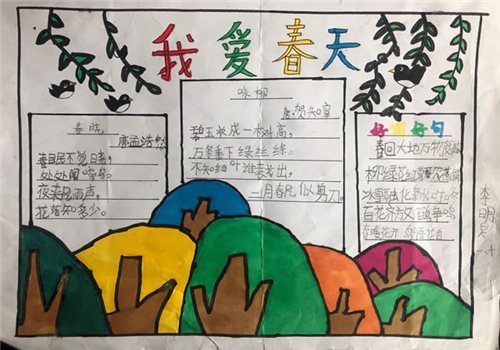 我爱春天
春晓
唐孟浩然
春眠不觉日尧，
处处闻啼鸟。
夜来风雨声，
花落知多少。
咏柳
唐·贺知章
碧玉妆成一树高，
万条垂下绿丝绦。
不知细叶谁裁出，
二月春风似剪刀。
好词好句
春回大地万物
冰雪融化
百花齐放
李明昊